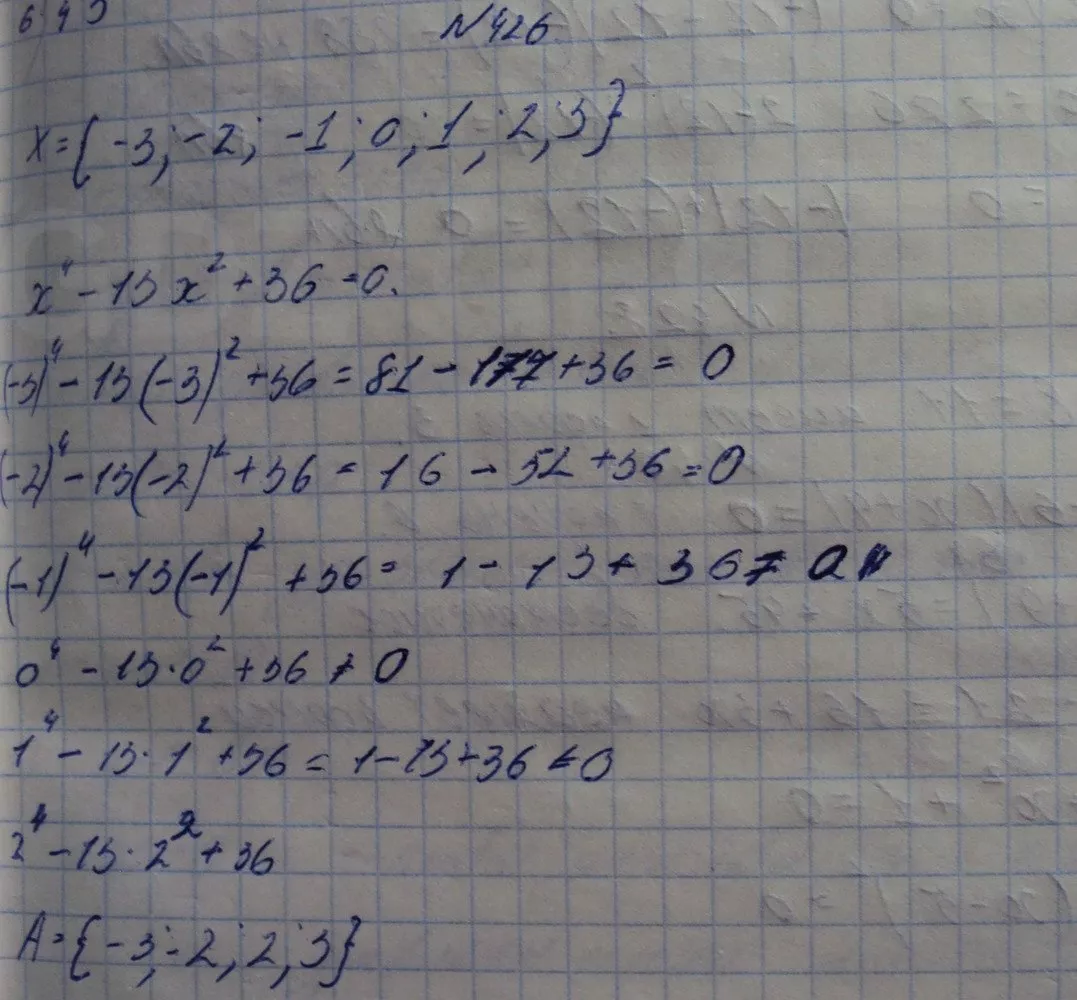 N426
X={-3; -2; -1; 0; 1; 2; 3}
x⁴ - 13x² + 36 = 0.
(-3)⁴ - 13(-3)² + 36 = 81 - 117 + 36 = 0
(-2)⁴ - 13(-2)² + 36 = 16 - 52 + 36 = 0
(-1)⁴ - 13(-1)² + 36 = 1 - 13 + 36 ≠ 0
0⁴ - 13·0² + 36 ≠ 0
1⁴ - 13·1² + 36 = 1 - 13 + 36 ≠ 0
2⁴ - 13·2² + 36
A={-3; -2; 2; 3}